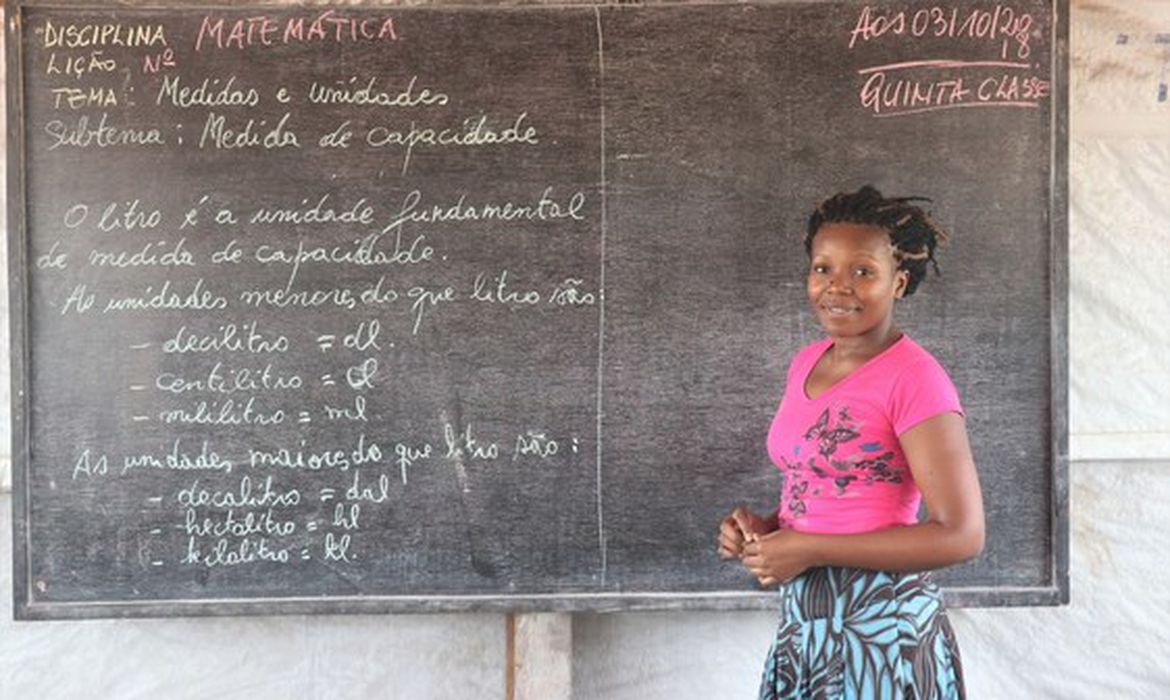 DISCIPLINA MATEMÁTICA
LIÇÃO Nº
TEMA: Medidas e unidades
Subtema: Medida de capacidade.
O litro é a unidade fundamental
de medida de capacidade.
As unidades menores do que litro são:
- decilitro = dl.
- centilitro = cl
- mililitro = ml.
As unidades maiores do que litro são:
- decalitro = dal
- hectolitro = hl
- kilolitro = kl.
AOS 03/10/2018.
QUINTA CLASSE